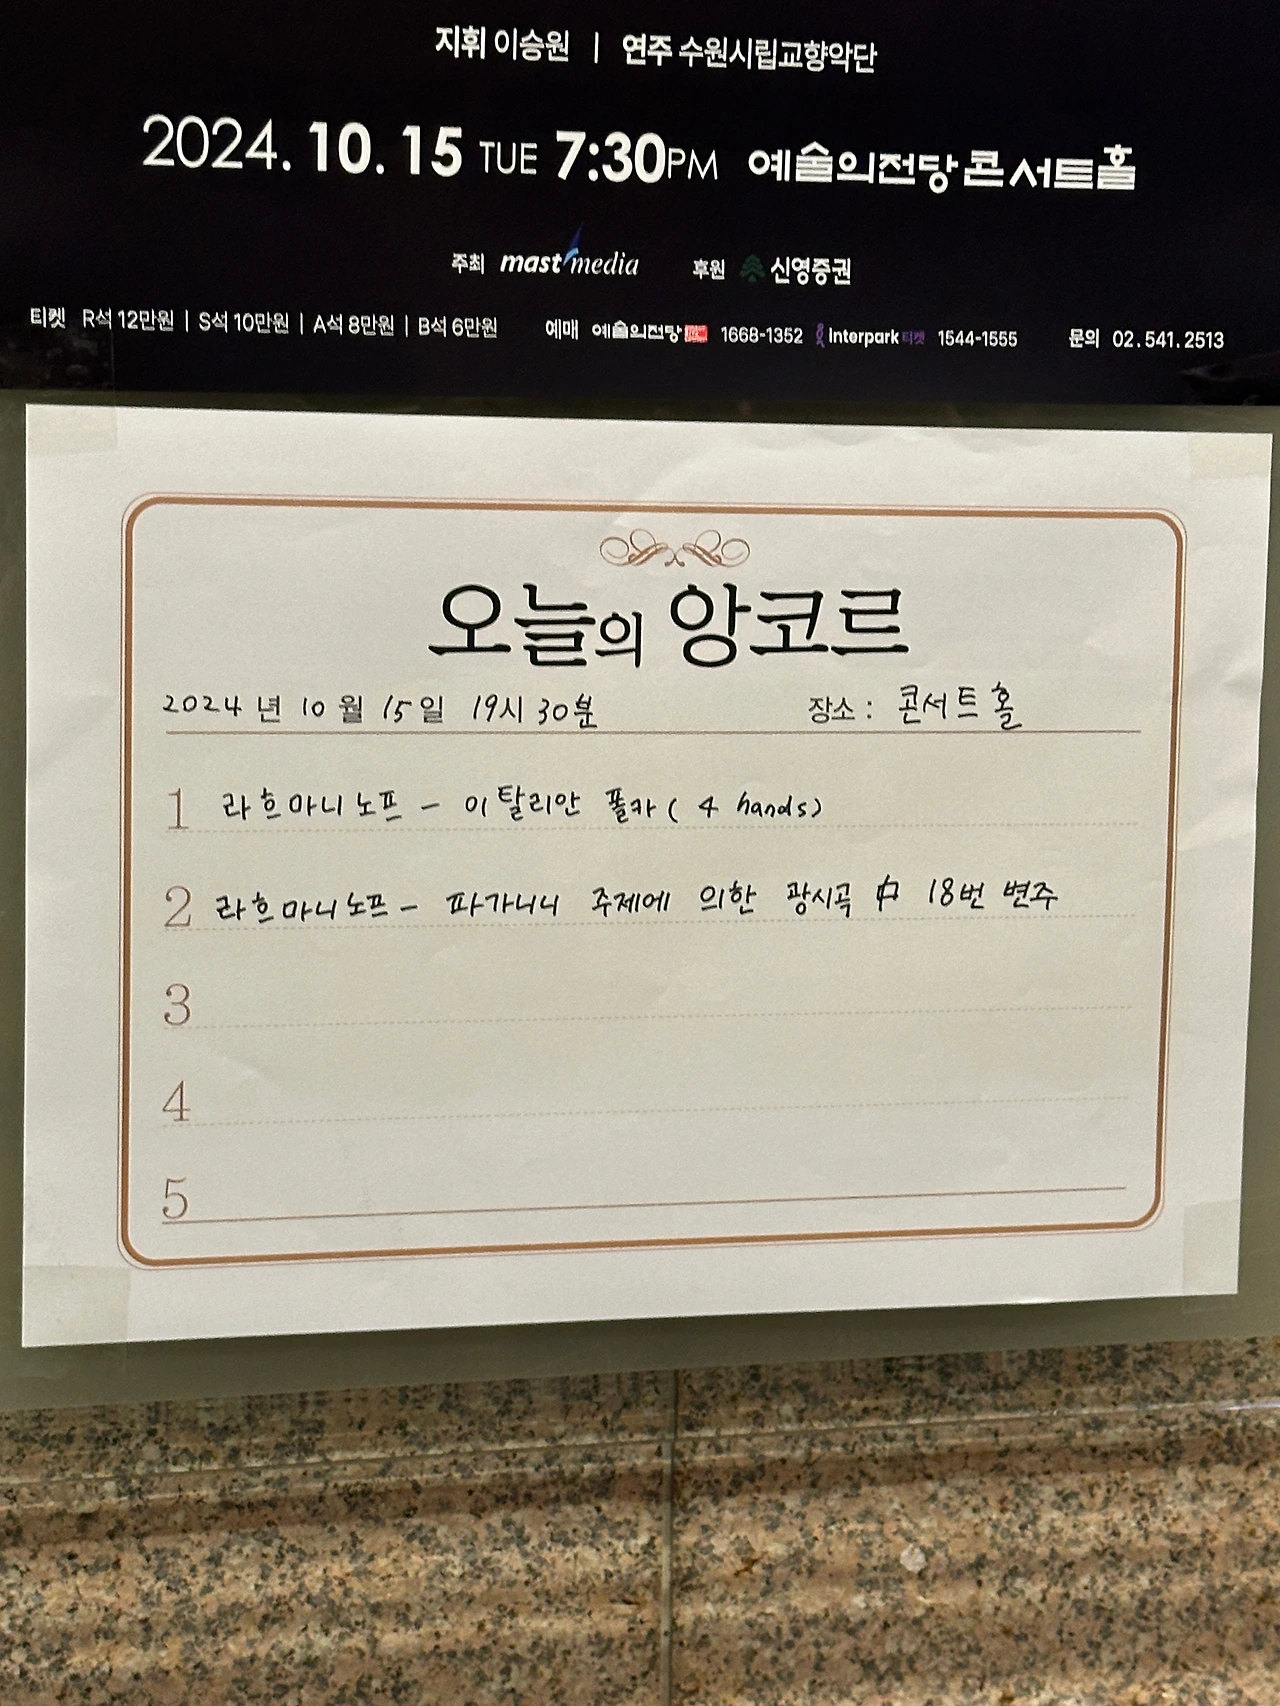 지휘 이승원 | 연주 수원시립교향악단
2024. 10. 15 TUE 7:30PM 예술의전당 콘서트홀
주최 mast media 후원 신영증권
티켓 R석 12만원 | S석 10만원 | A석 8만원 | B석 6만원 예매 예술의전당 1668-1352 Interpark 티켓 1544-1555 문의 02.541.2513
오늘의 앙코르
2024 년 10 월 15 일 19시 30분 장소 : 콘서트홀
1 라흐마니노프 - 이탈리안 폴카 ( 4 hands)
2 라흐마니노프 - 파가니니 주제에 의한 광시곡 中 18번 변주
3
4
5